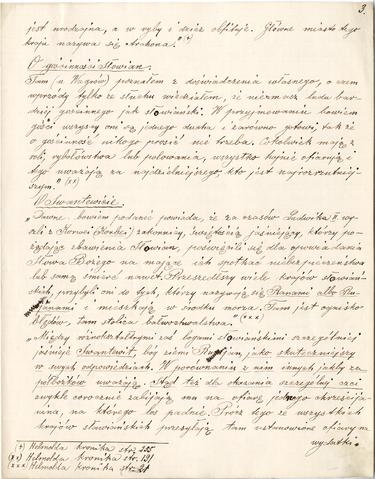 3.
jest urodzajna, a w ryby i dzicz obfituje. Główne miasto tego
kraju nazywa się Arkona. (+)
O gościnności Słowian.
Tam (u Wagrów) poznałem z doświadczenia własnego, o czem
wprzódy tylko ze słuchu wiedziałem, że niézmasz ludu bar-
dziej gościnnego jak słowiański. W przyjmowaniu bowiem
gości wszyscy oni są jednego ducha i zarówno gotowi, tak że
o gościnność nikogo prosić nie trzeba. Cokolwiek mają z
roli, rybołówstwa lub polowania, wszystko hojnie ofiarują i
tego uważają za najdzielniejszego, kto jest najrozrzutniej-
szym." (xx)
O Swantewicie.
„Dawne bowiem podanie powiada, że za czasów Ludwika II wy-
szli z Korvei zakonnicy, świętością jaśniejący, którzy po-
żądając zbawienia Słowian, poświęcili się dla opowiadania
Słowa Bożego na mające ich spotkać niebezpieczeństwa
lub samą śmierć nawet. Przeszedłszy wiele krajów słowiań-
skich, przybyli oni do tych, którzy nazywają się Ranami albo Ru-
ianami i mieszkają w środku morza. Tam jest ognisko
błędów, tam stolica bałwochwalstwa. (xxx)
„Między różnokształtnymi zaś bogami słowiańskimi szczególniej
jaśnieje Swantewit, bóg ziemi Rugijan, jako skuteczniejszy
w swych odpowiedziach. W porównaniu z nim innych jakby za
półbożków uważają. Stąd też dla okazania szczególnej czci
zwykle corocznie zabijają mu na ofiarę jednego chrześcija-
nina, na którego los padnie. Prócz tego ze wszystkich
krajów słowiańskich przesyłają tam ustanowione ofiary na
wydatki.
(+) Helmolda kronika str. 335
(xx) Helmolda kronika str. 191
(xxx) Helmolda kronika str. 21